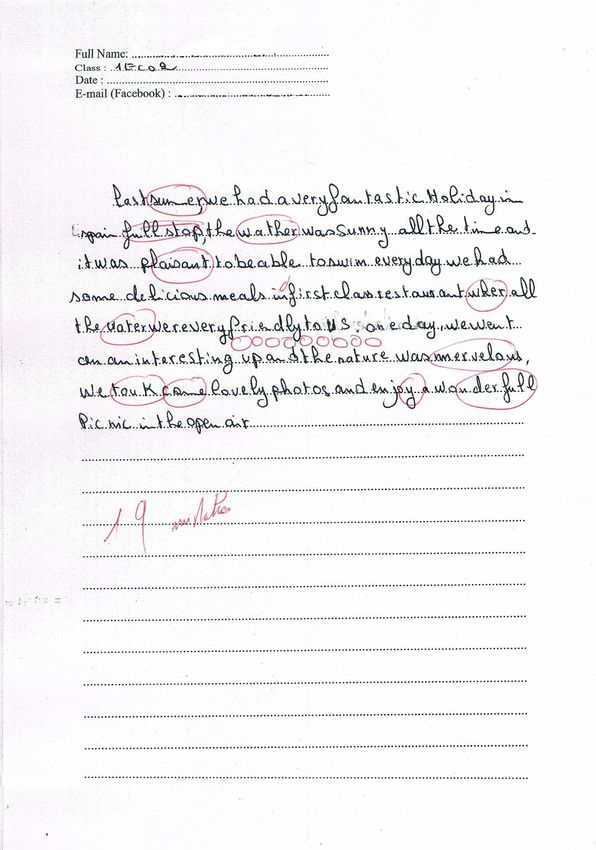 Full Name:
Class : 1Eco2
Date :
E-mail (Facebook) :
Last sumer, we had a very fantastic Holiday in
spain full stop, the wather was Sunny all the time and
it was plaisant to be able to swim every day we had
some delicious meals in first class restaurant wher all
the vater were very friendly to US. one day, we went
on an interesting up and the nature was mervelous,
we touk came lovely photos and enjoy a wonderfull
Picnic in the open air
19 mistakes